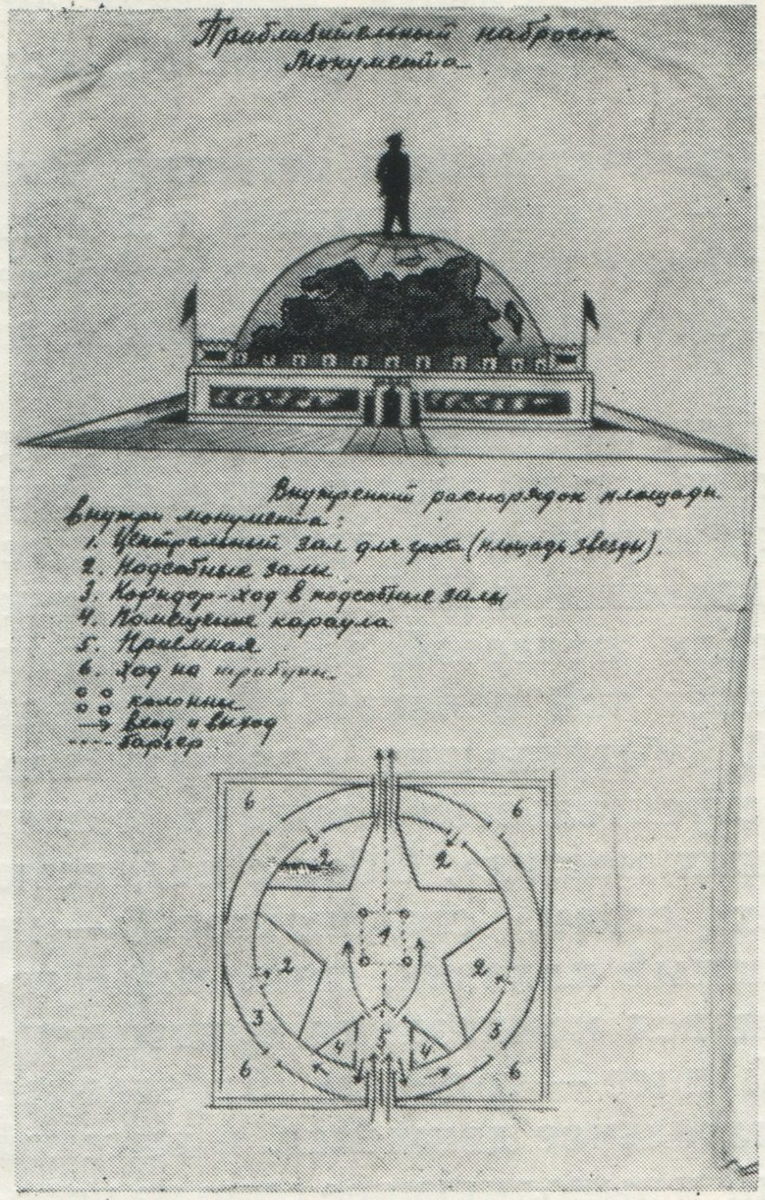 Приблизительный набросок
Монумента
Внутренний распорядок площади
внутри монумента:
1. Центральный зал для гроба (площадь звезды).
2. Подсобные залы
3. Коридор-ход в подсобные залы
4. Помещение караула
5. Приемная
6. Ход на трибуны.
колонны
→ вход и выход
---- барьер
6 6
2 2
1
2 2
3 3
4 5 4
6 6